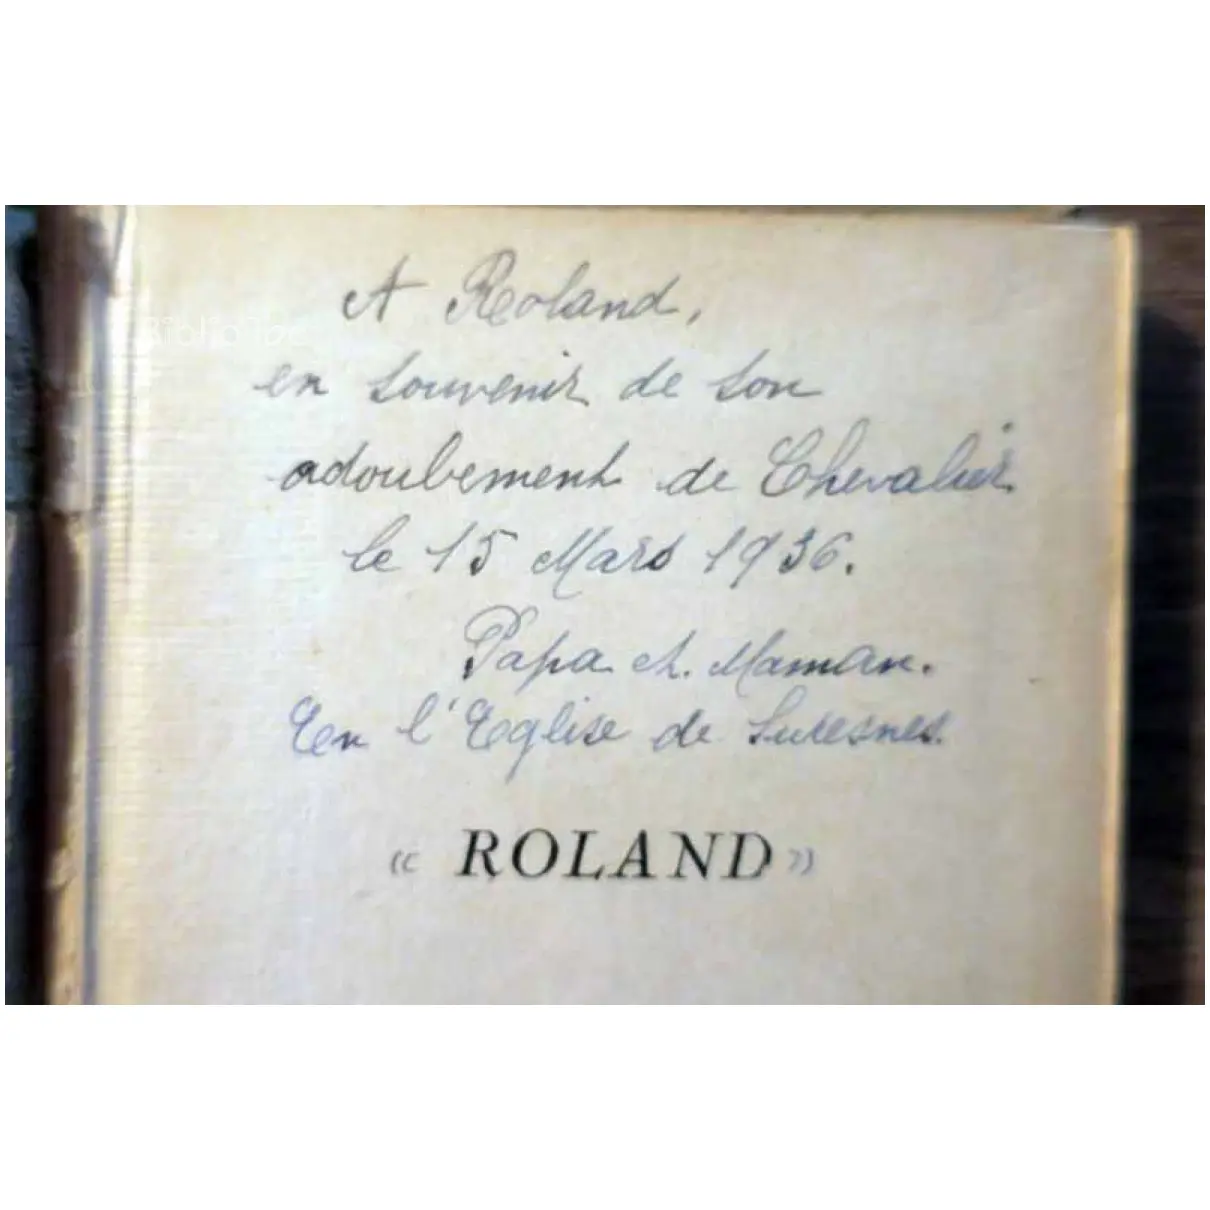 A Roland,
en souvenir de son
adoubement de Chevalier
le 15 Mars 1936.
Papa et Maman.
En l'Eglise de Suresnes.
« ROLAND »